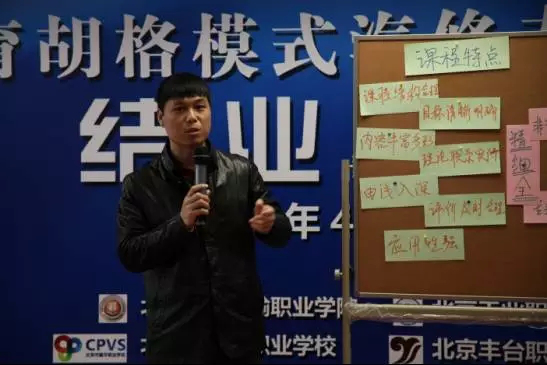 育胡格模式汽修
结业
年4
课程特点
课程结构合理
目标清晰明确
内容丰富多彩
理论联系实际
由浅入深
评价及时合理
应用性强
精细全
输职业学院
北京工业职
CPVS
职业学校
北京丰台职